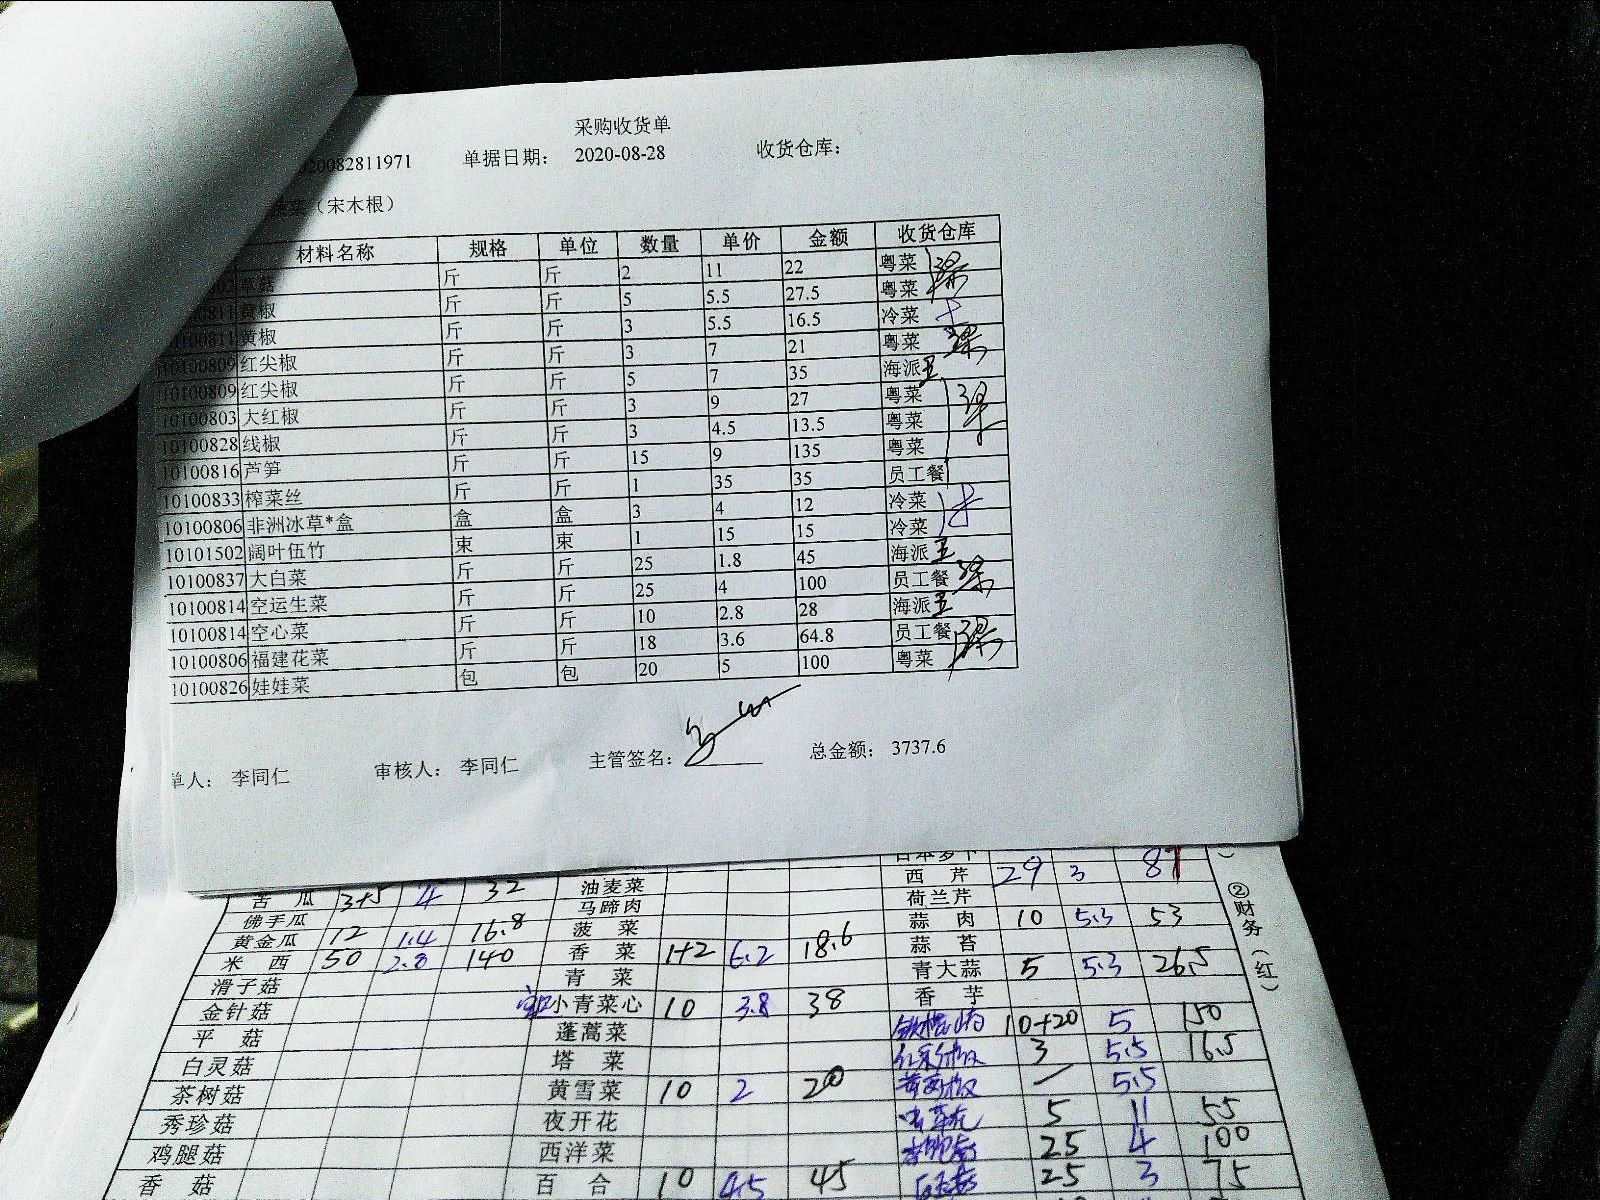 采购收货单
20082811971 单据日期： 2020-08-28 收货仓库：
（宋木根）
材料名称 规格 单位 数量 单价 金额 收货仓库
草菇 斤 斤 2 11 22 粤菜
黄椒 斤 斤 5 5.5 27.5 粤菜
10100811 黄椒 斤 斤 3 5.5 16.5 冷菜
10100809 红尖椒 斤 斤 3 7 21 粤菜
10100809 红尖椒 斤 斤 5 7 35 海派 王
10100803 大红椒 斤 斤 3 9 27 粤菜
10100828 线椒 斤 斤 3 4.5 13.5 粤菜
10100816 芦笋 斤 斤 15 9 135 粤菜
10100833 榨菜丝 斤 斤 1 35 35 员工餐
10100806 非洲冰草*盒 盒 盒 3 4 12 冷菜
10101502 阔叶伍竹 束 束 1 15 15 冷菜
10100837 大白菜 斤 斤 25 1.8 45 海派 王
10100814 空运生菜 斤 斤 25 4 100 员工餐
10100814 空心菜 斤 斤 10 2.8 28 海派 王
10100806 福建花菜 斤 斤 18 3.6 64.8 员工餐
10100826 娃娃菜 包 包 20 5 100 粤菜
单人： 李同仁 审核人： 李同仁 主管签名： 总金额： 3737.6
苦瓜 3+5 4 32 油麦菜 西芹 29 3 87
佛手瓜 马蹄肉 荷兰芹
黄金瓜 12 1.4 16.8 菠菜 蒜肉 10 5.3 53
米西 50 2.8 140 香菜 1+2 6.2 18.6 蒜苔
滑子菇 青菜 青大蒜 5 5.3 26.5
金针菇 小青菜心 10 3.8 38 香芋
平菇 蓬蒿菜 10+20 5 150
白灵菇 塔菜 红彩椒 3 5.5 16.5
茶树菇 黄雪菜 10 2 20 5.5
秀珍菇 夜开花 5 11 55
鸡腿菇 西洋菜 25 4 100
香菇 百合 10 4.5 45 25 3 75
②财务（红）